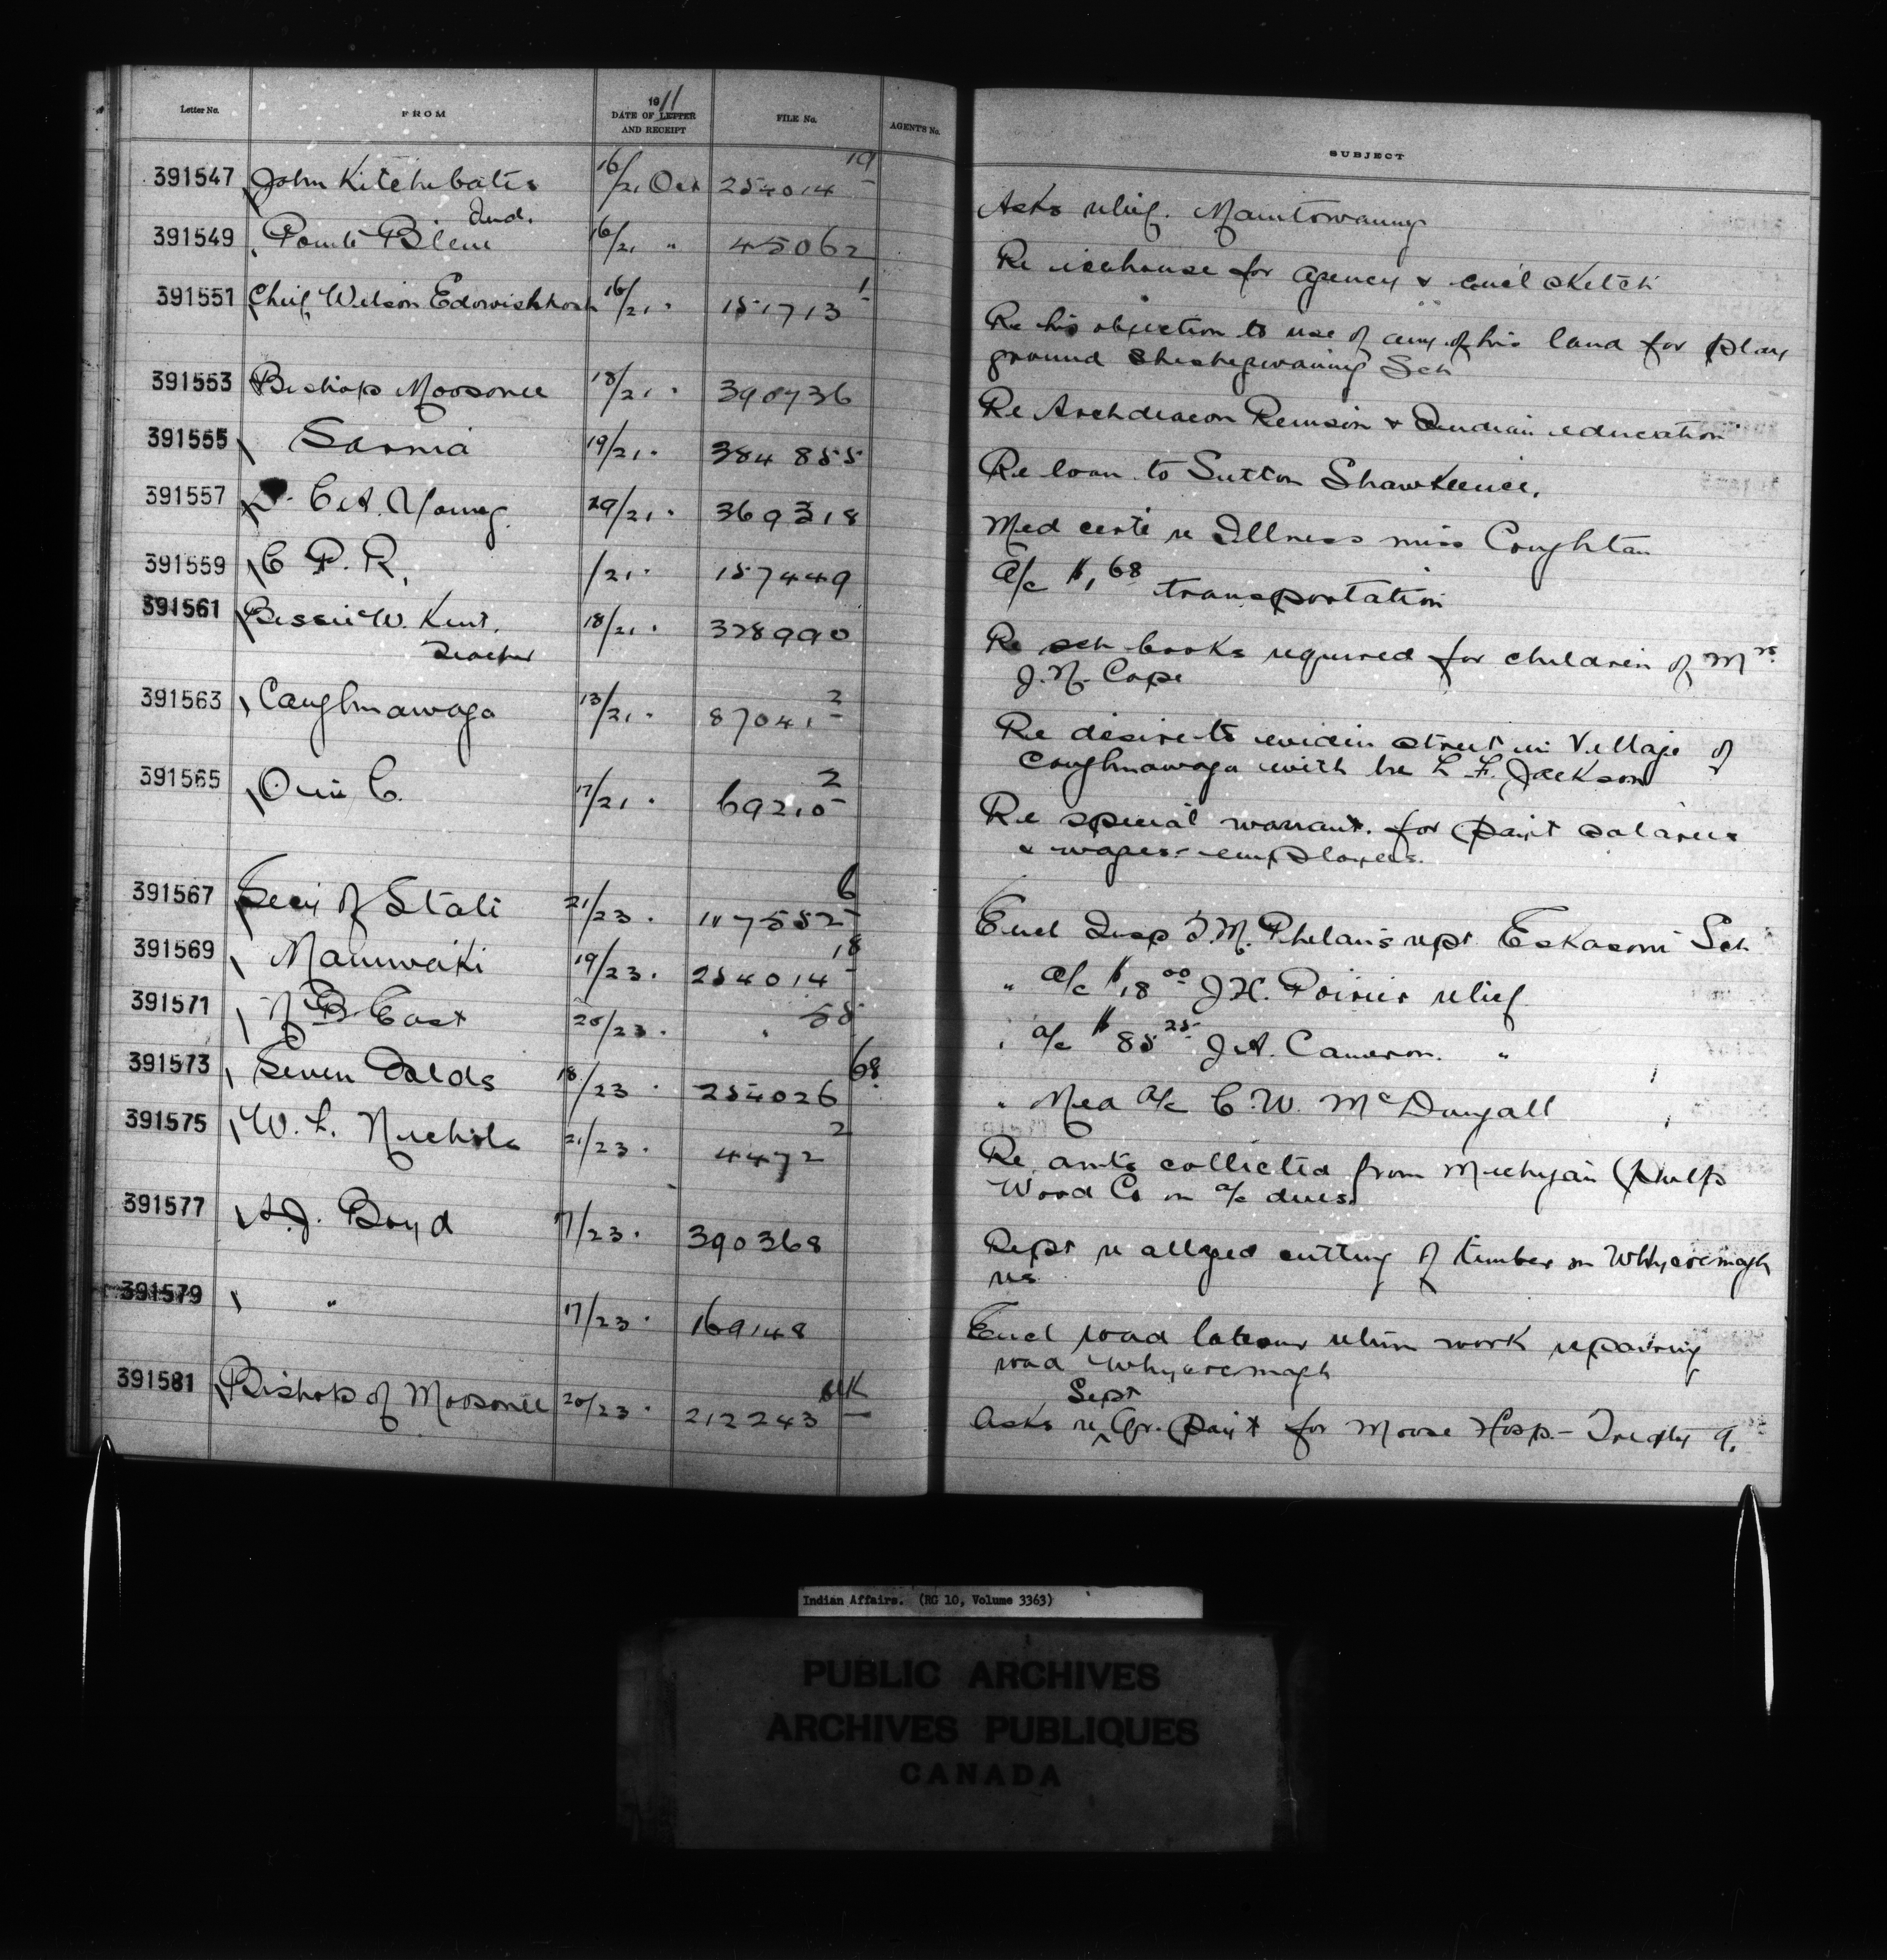 Letter No. FROM 1911 DATE OF LETTER AND RECEIPT FILE No. AGENT'S No. SUBJECT
391547 John Kitchebatis Ind. 16/21 Oct 254014-19 Asks relief. Manitowaning
391549 Pointe Bleue 16/21 " 45062 Re icehouse for agency & encl sketch
391551 Chief Wilson Edowishkosh 16/21 " 151713-1 Re his objection to use of any of his land for play
ground Sheshegwaning Sch
391553 Bishop Moosonee 18/21 " 390736 Re Archdeacon Renison & Indian education
391555 Sarnia 19/21 " 384855 Re loan to Sutton Shawkence.
391557 C.A. Young. 29/21 " 369318 Med certe re Illness miss Coughlan
391559 C P. R. /21 " 157449 a/c $1,68 transportation
391561 Bessie W. Kent. Teacher 18/21 " 328990 Re sch books required for children of Mrs
J. N. Cope
391563 Caughnawaga 13/21 " 87041-2 Re desire to widen street in Village of
Caughnawaga with lre L. F. Jackson
391565 Orii C. 17/21 " 69210-2 Re special warrant. for paint salaries
& wages employees.
391567 Secy of State 21/23 " 117552-6 Encl Insp T.M. Phelan's rept Eskasoni Sch
391569 Maniwaki 19/23 " 254014-18 " a/c $18 00 J.H. Poirier relief
391571 N B East 20/23 " " 58 " a/c $85 25 J.A. Cameron. "
391573 Seven Oalds 18/23 " 254026 68 " Med a/c C. W. McDougall
391575 W. L. Nichols 21/23 " 4472 2 Re amts collected from Michigan Pulp
Wood Co on a/c dues
391577 A.J. Boyd 17/23 " 390368 Rept re alleged cutting of timber on Whycocomagh
res
391579 " 17/23 " 169148 Encl road labour return work repairing
road Whycocomagh
391581 Bishop of Moosonee 20/23 " 212243 Asks re Sept Qr. paint for Moose Hosp - Treaty 9.
Indian Affairs. (RG 10, Volume 3363)
PUBLIC ARCHIVES
ARCHIVES PUBLIQUES
CANADA